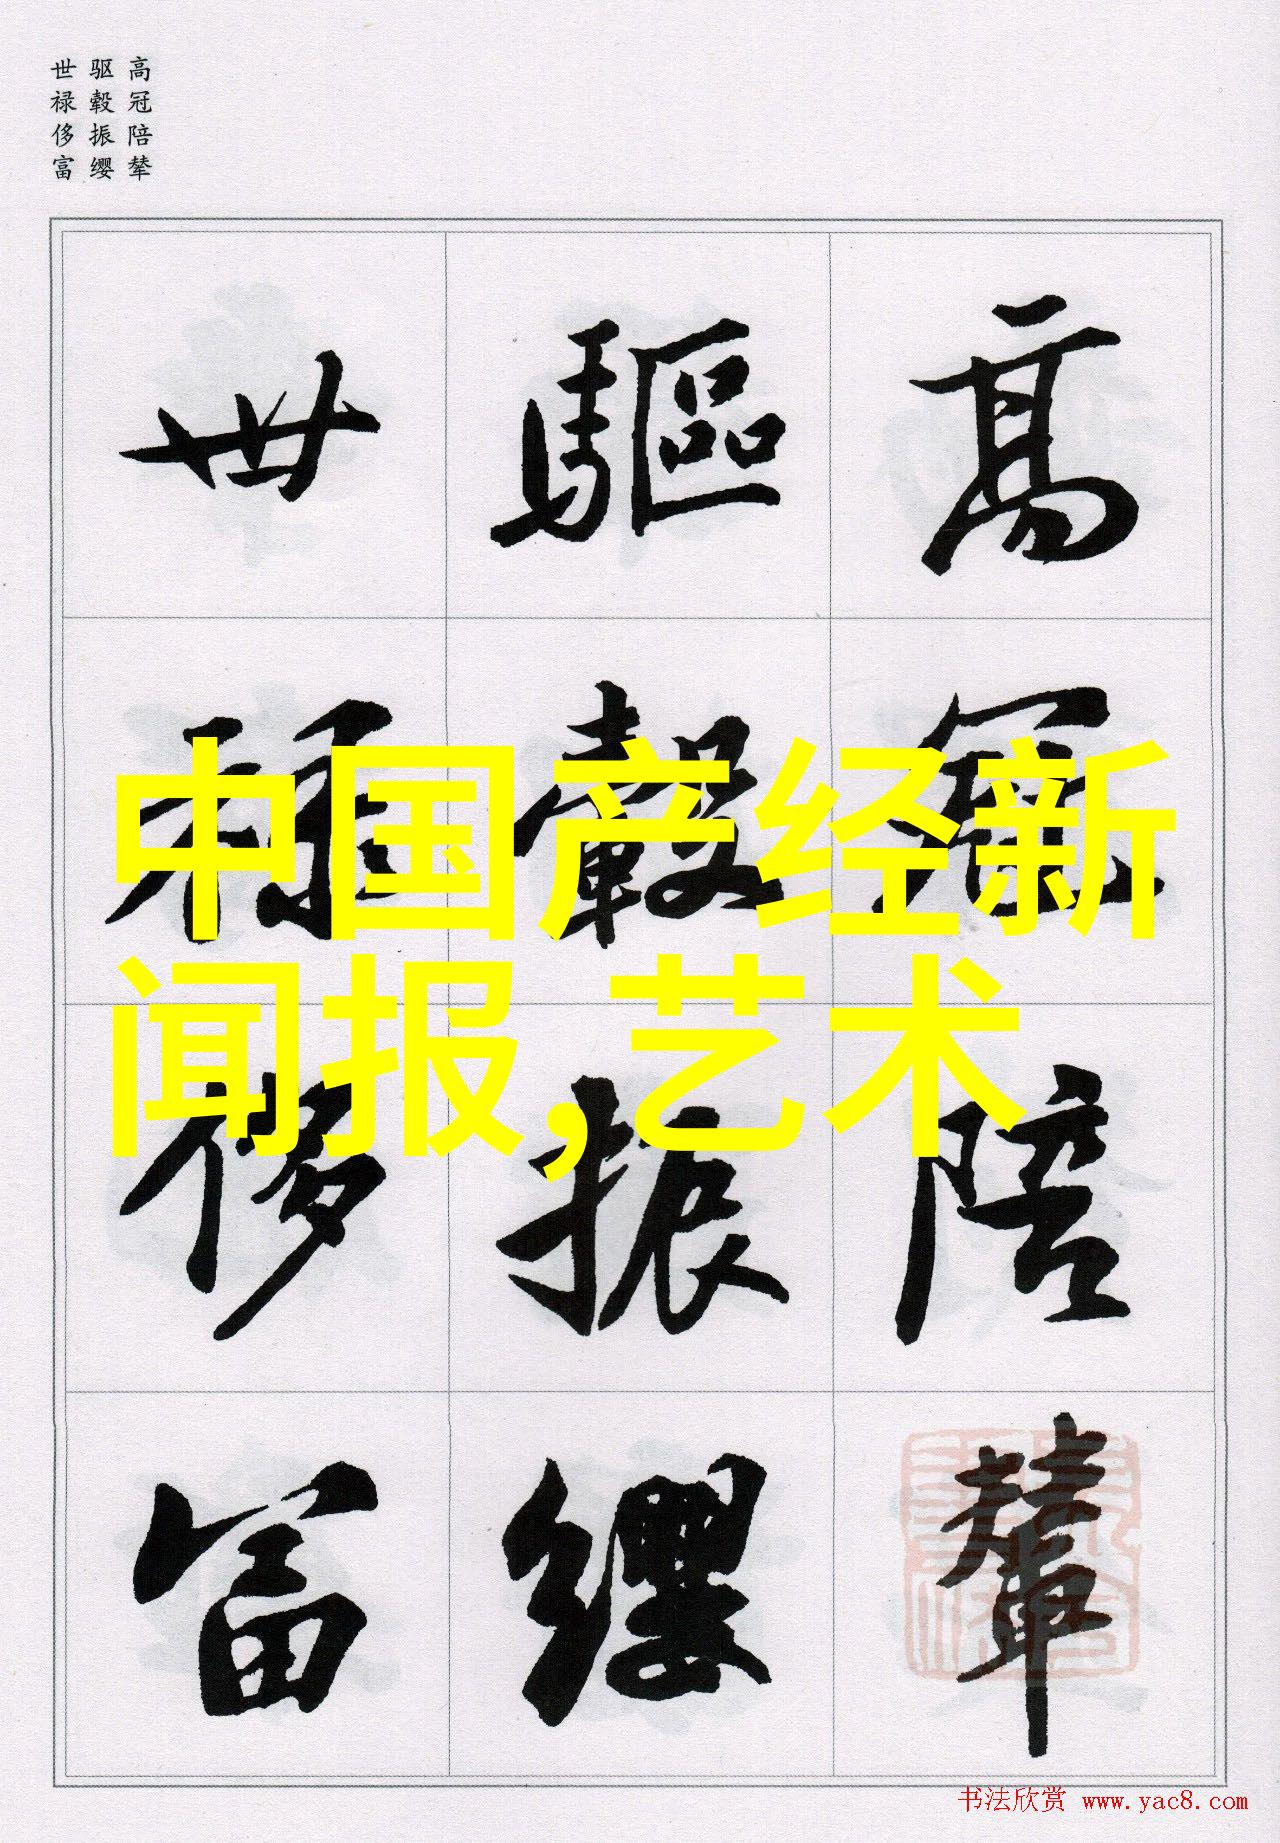 高冠陪辇
驱毂振缨
世禄侈富
高冠陪輦
驅轂振纓
世禄侈富
中国产经新
闻报,艺术
书法欣赏 www.yac8.com